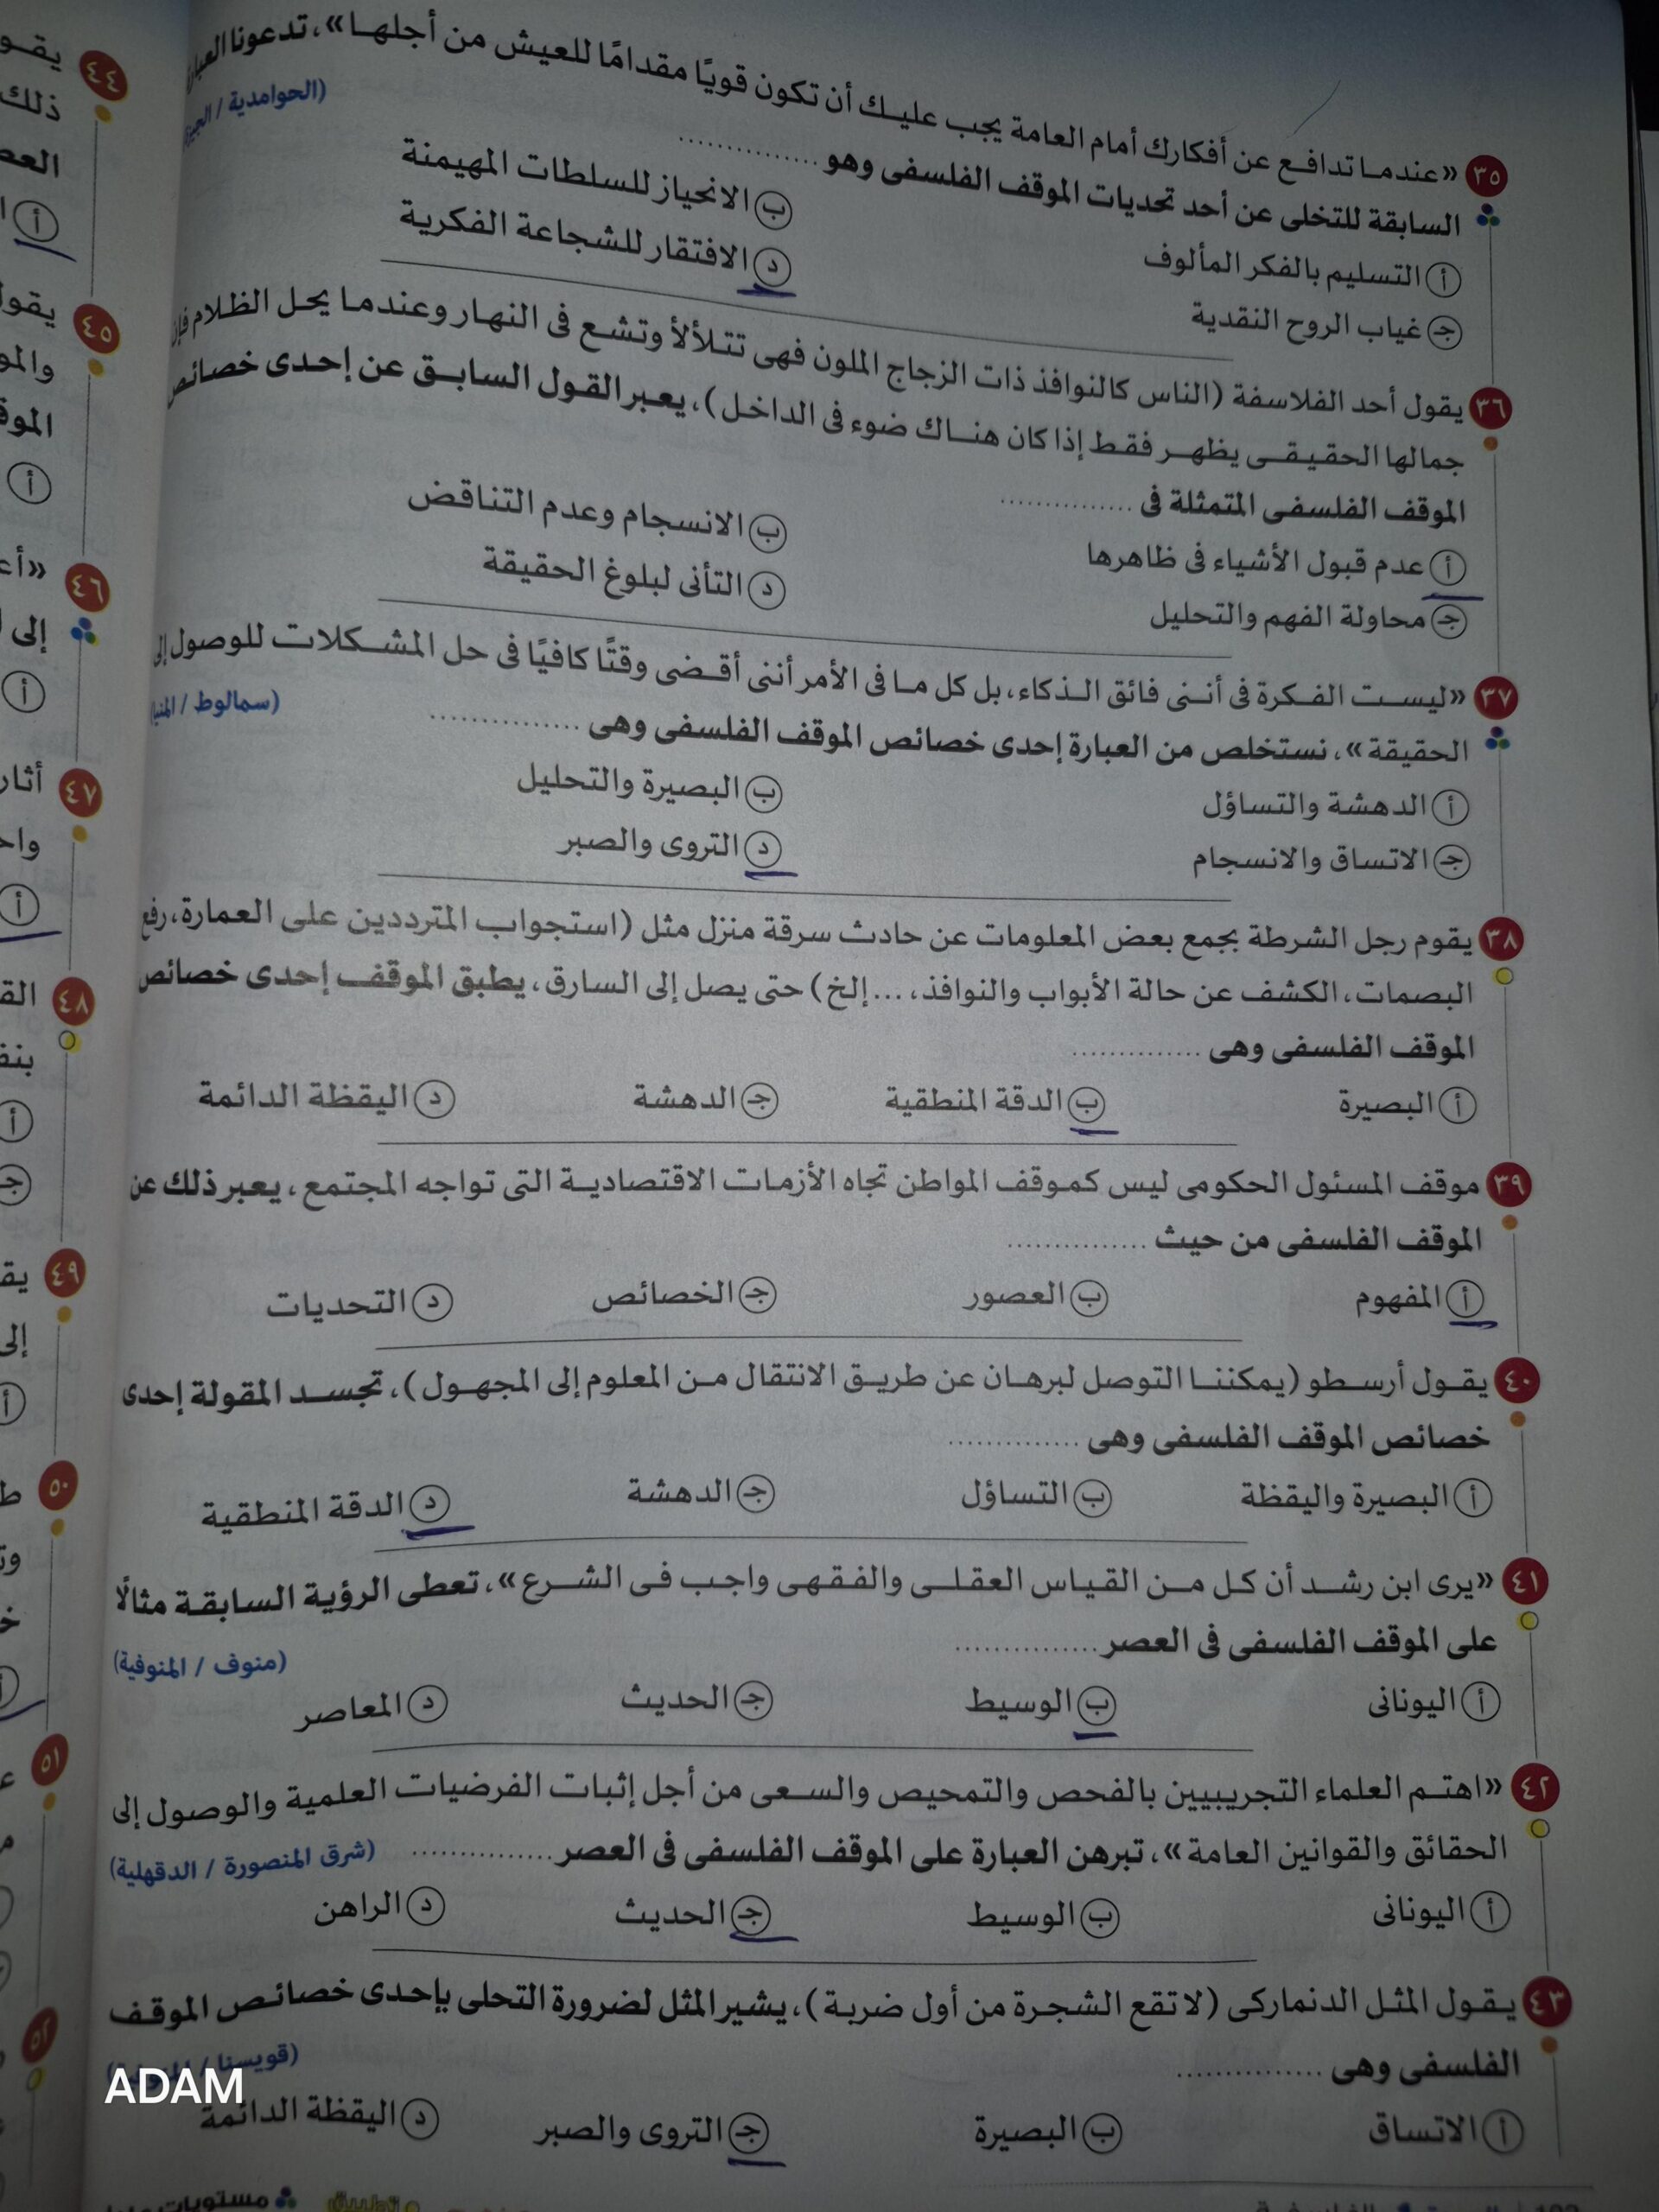 ٣٥ «عندما تدافع عن أفكارك أمام العامة يجب عليك أن تكون قويًا مقدامًا للعيش من أجلها»، تدعونا
(الحوامدية /
السابقة للتخلى عن أحد تحديات الموقف الفلسفى وهو ...............
أ التسليم بالفكر المألوف
ب الانحياز للسلطات المهيمنة
ج غياب الروح النقدية
د الافتقار للشجاعة الفكرية
٣٦ يقول أحد الفلاسفة (الناس كالنوافذ ذات الزجاج الملون فهى تتلألأ وتشع فى النهار وعندما يحل الظلام فإن
جمالها الحقيقى يظهر فقط إذا كان هناك ضوء فى الداخل)، يعبر القول السابق عن إحدى خصائص
الموقف الفلسفى المتمثلة فى ...............
أ عدم قبول الأشياء فى ظاهرها
ب الانسجام وعدم التناقض
ج محاولة الفهم والتحليل
د التأنى لبلوغ الحقيقة
٣٧ «ليست الفكرة فى أننى فائق الذكاء، بل كل ما فى الأمر أننى أقضى وقتًا كافيًا فى حل المشكلات للوصول إلى
(سمالوط /
الحقيقة»، نستخلص من العبارة إحدى خصائص الموقف الفلسفى وهى ...............
أ الدهشة والتساؤل
ب البصيرة والتحليل
ج الاتساق والانسجام
د التروى والصبر
٣٨ يقوم رجل الشرطة بجمع بعض المعلومات عن حادث سرقة منزل مثل (استجواب المترددين على العمارة، رفع
البصمات، الكشف عن حالة الأبواب والنوافذ، ... إلخ) حتى يصل إلى السارق، يطبق الموقف إحدى خصائص
الموقف الفلسفى وهى ...............
أ البصيرة ب الدقة المنطقية ج الدهشة د اليقظة الدائمة
٣٩ موقف المسئول الحكومى ليس كموقف المواطن تجاه الأزمات الاقتصادية التى تواجه المجتمع، يعبر ذلك عن
الموقف الفلسفى من حيث ...............
أ المفهوم ب العصور ج الخصائص د التحديات
٤٠ يقول أرسطو (يمكننا التوصل لبرهان عن طريق الانتقال من المعلوم إلى المجهول)، تجسد المقولة إحدى
خصائص الموقف الفلسفى وهى ...............
أ البصيرة واليقظة ب التساؤل ج الدهشة د الدقة المنطقية
٤١ «يرى ابن رشد أن كل من القياس العقلى والفقهى واجب فى الشرع»، تعطى الرؤية السابقة مثالًا
على الموقف الفلسفى فى العصر ...............
(منوف / المنوفية)
أ اليونانى ب الوسيط ج الحديث د المعاصر
٤٢ «اهتم العلماء التجريبيين بالفحص والتمحيص والسعى من أجل إثبات الفرضيات العلمية والوصول إلى
الحقائق والقوانين العامة»، تبرهن العبارة على الموقف الفلسفى فى العصر ...............
(شرق المنصورة / الدقهلية)
أ اليونانى ب الوسيط ج الحديث د الراهن
٤٣ يقول المثل الدنماركى (لا تقع الشجرة من أول ضربة)، يشير المثل لضرورة التحلى بإحدى خصائص الموقف
الفلسفى وهى ...............
(قويسنا /
أ الاتساق ب البصيرة ج التروى والصبر د اليقظة الدائمة
ADAM
٤٤
ذلك
أ
٤٥
أ
٤٦
إلى
أ
٤٧
أ
٤٨
أ
ج
٤٩
إلى
أ
٥٠
٥١
٥٢